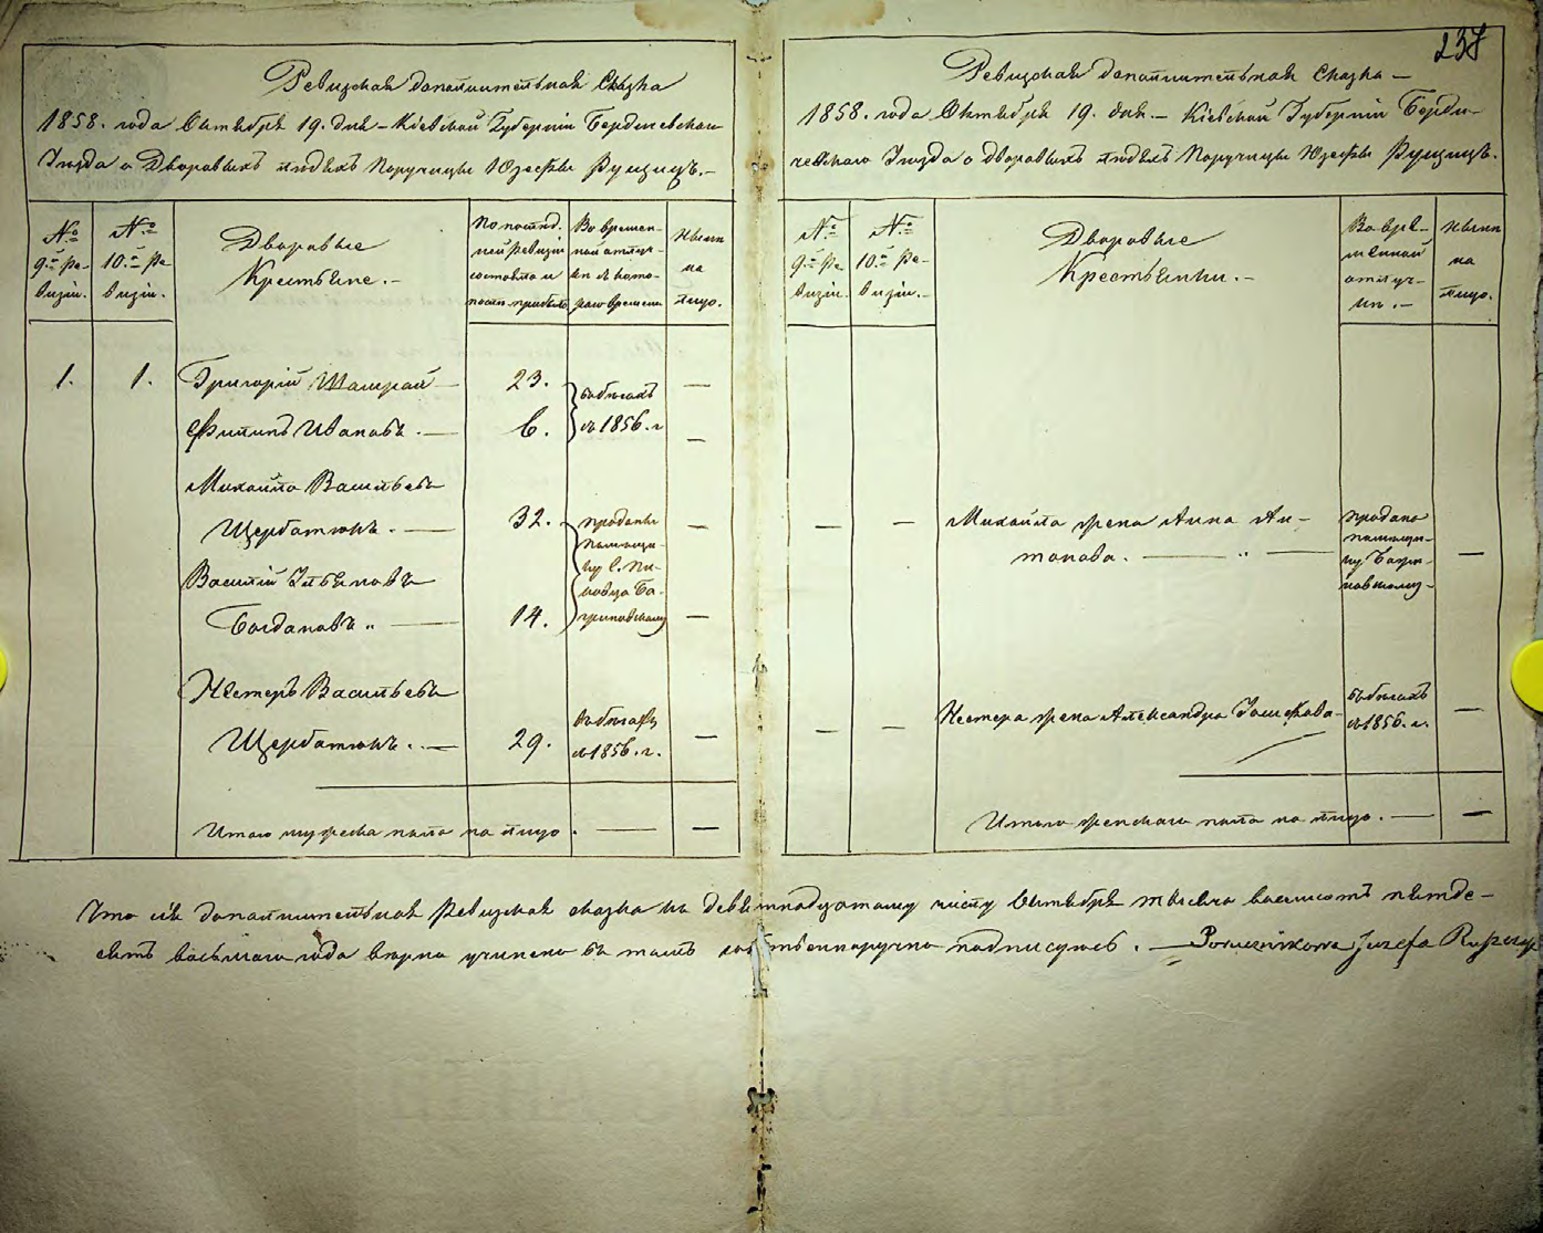 238
Ревизская дополнительная Сказка
1858. года Октября 19. дня – Кіевской Губерніи Бердичевскаго
Уезда о Дворовыхъ людяхъ Поручицы Юзефы Рущицъ. –
№ 9й Ре-
визіи.
№ 10й Ре-
визіи.
Дворовые
Крестьяне. –
По послѣд.
ней Ревизіи
состояло и
послѣ прибыло
Во времен-
ной отлуч-
ки съ кото-
раго времени
Нынѣ
на
лицо.
1. 1. Григорій – 23. въ бѣгахъ –
Филипъ Ивановъ. – 6. съ 1856. г –
Михайло Васильевъ
Щербатюкъ. – 32. проданы –
помѣщи-
ку с.
Василій
Богдановъ „ – 14. –
Нестеръ Васильевъ
Щербатюкъ. – 29. въ бѣгахъ –
съ 1856. г.
Итого мужеска пола на лицо. – –
Ревизская дополнительная Сказка –
1858. года Октября 19. дня. – Кіевской Губерніи Берди-
чевскаго Уезда о дворовыхъ людяхъ Поручицы Юзефы Рущицъ.
№ 9й Ре-
визіи.
№ 10й Ре-
визіи. –
Дворовые
Крестьянки. –
Во вре-
менной
отлуч-
ки. –
Нынѣ
на
лицо.
– – Михайла жена Анна Ан- продана
тонова. – „ – помѣщи- –
ку
– – Нестера жена Александра въ бѣгахъ –
съ 1856. г.
Итого женскаго пола на лицо. – –
Что сія дополнительная Ревизская сказка къ девятнадцатому числу Октября тысяча восемсотъ пятде-
сятъ восьмаго года вѣрно учинена въ томъ собственноручно подписуюсь. – Porucznikowa Jozefa Ruszczyc